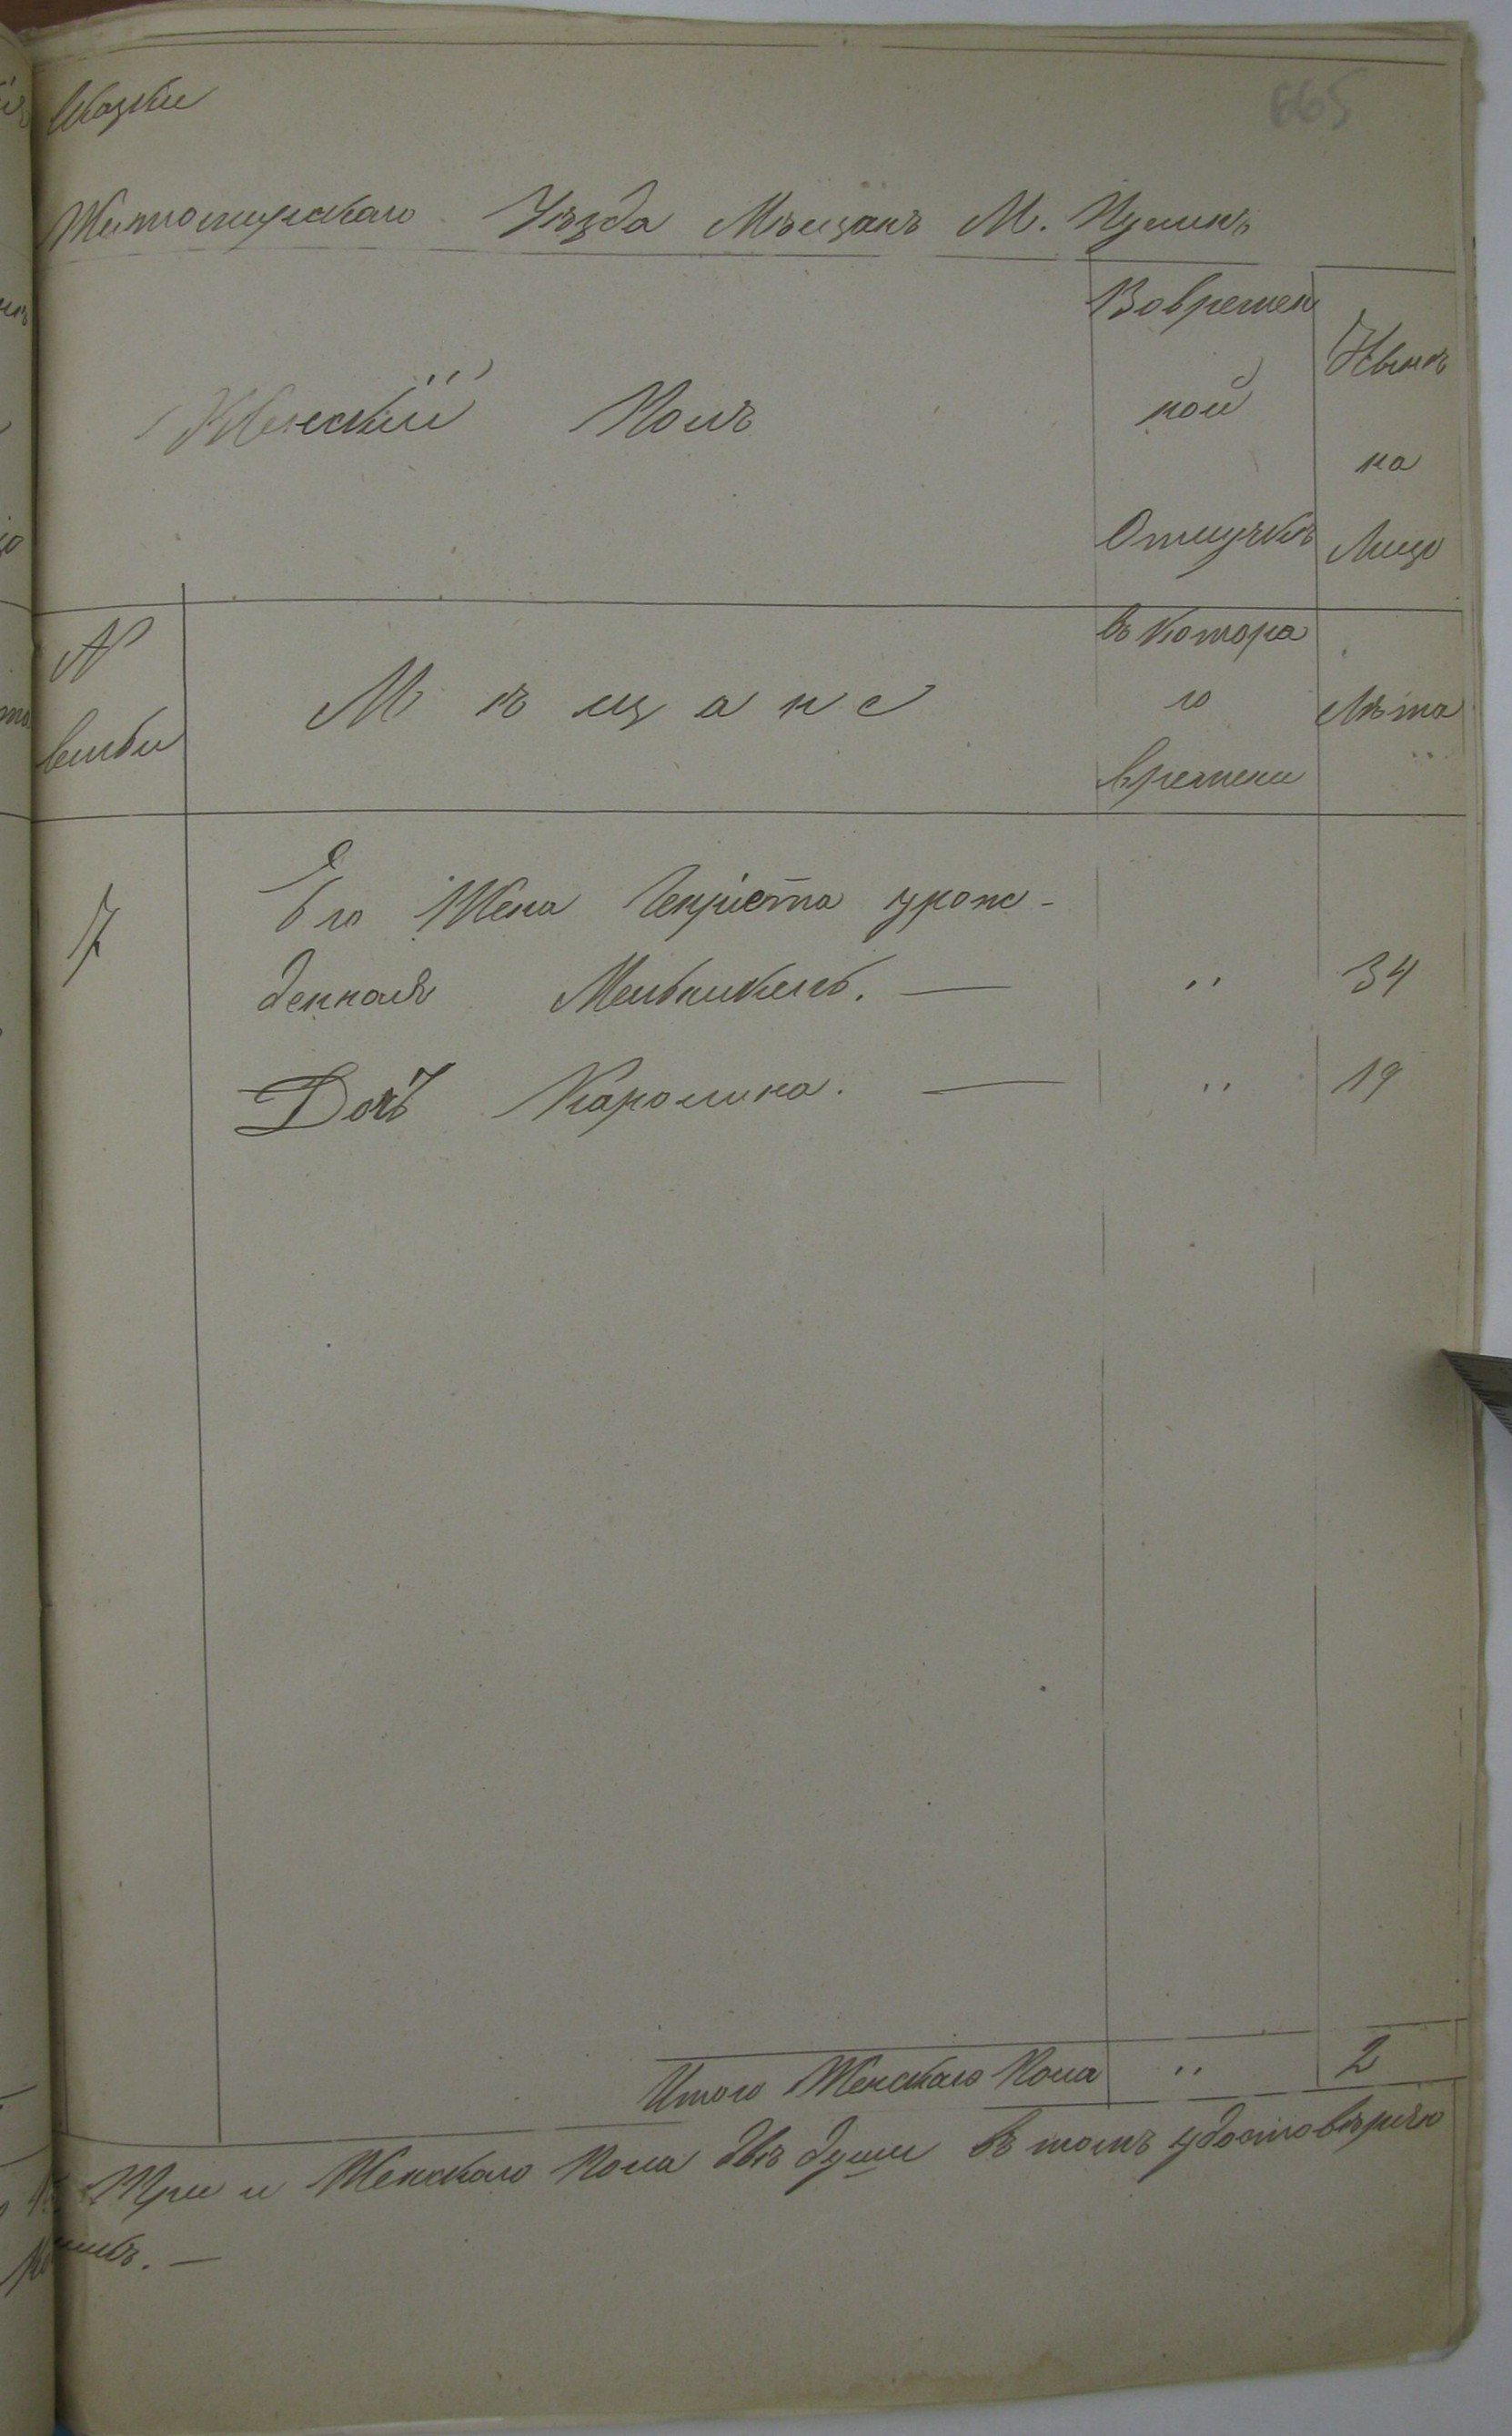 665
Сказки
Житомирскаго Уѣзда Мѣщанъ М. Пулинъ
Женскій Полъ
Во времен
ной
Отлучкѣ
Нынѣ
на
Лицо
№
семьи
Мѣщане
съ котора
го
времени
Лѣта
7
Его Жена Генріета урож-
денная — " 34
Дочь Каролина. — " 19
Итого Женскаго Пола " 2
Три и Женскаго Пола двѣ души въ томъ удостовѣряю